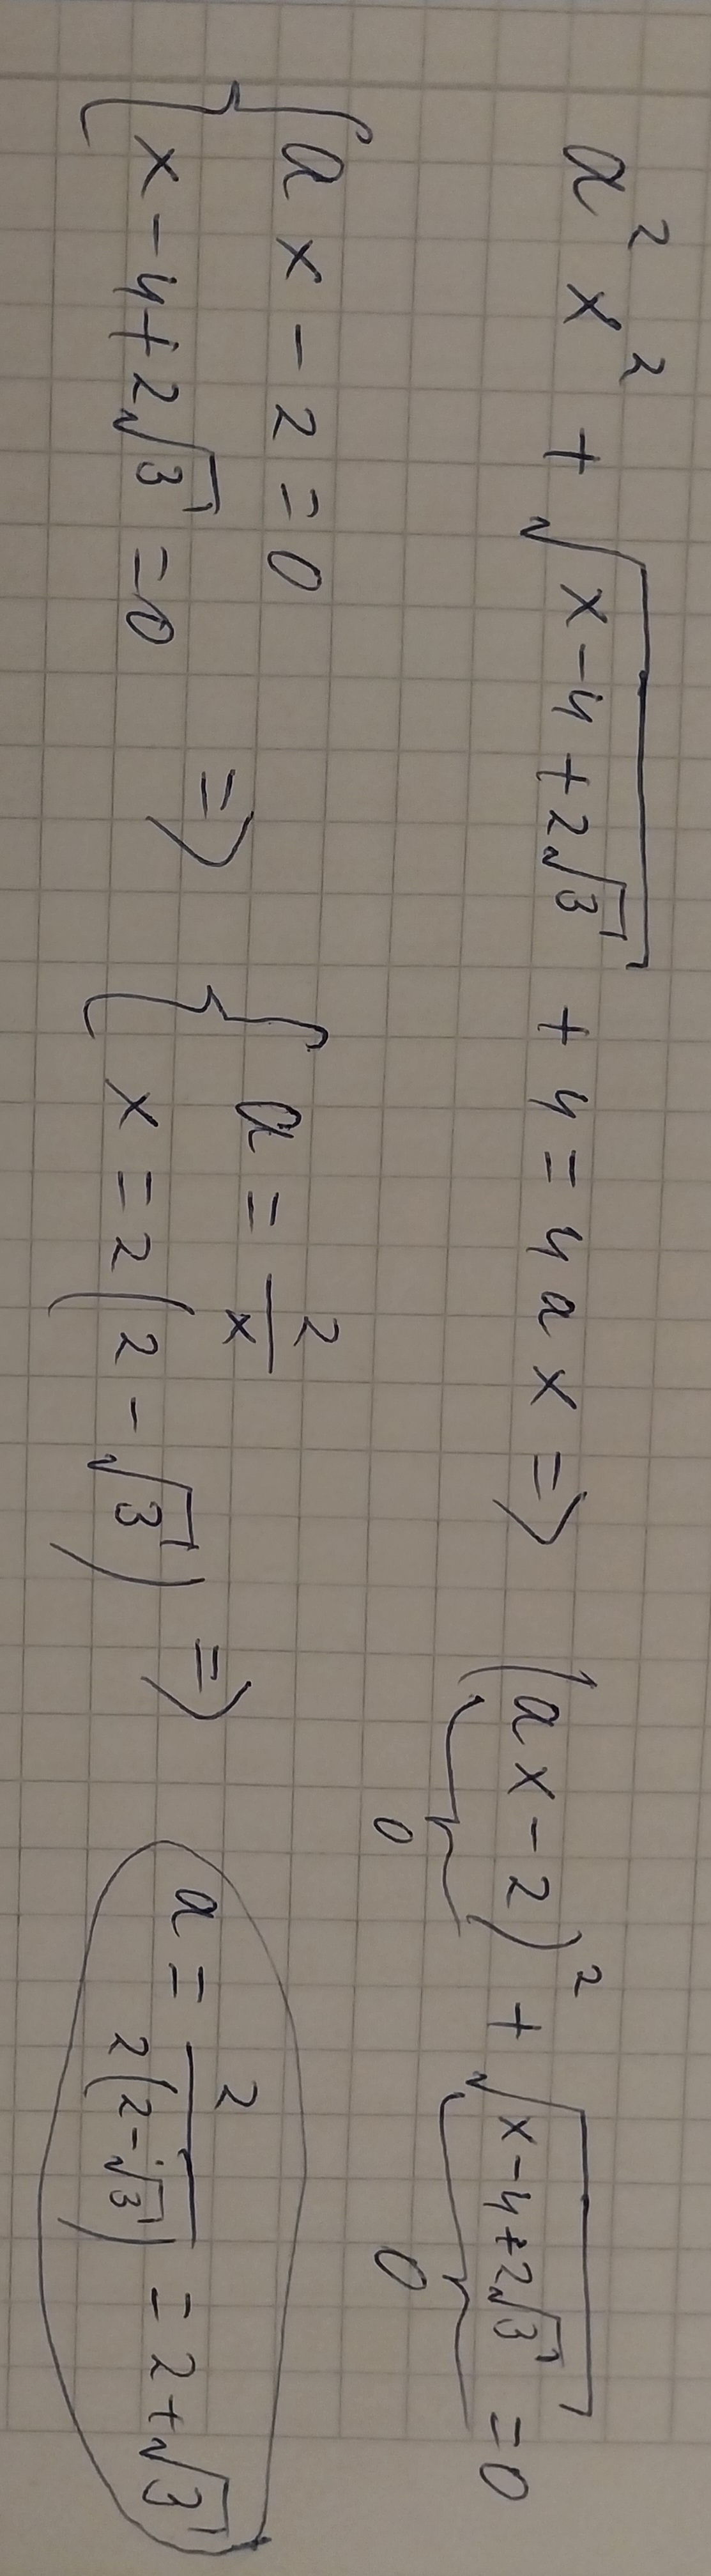 a² x² + √(x-4+2√3) + 4 = 4ax => (ax-2)² + √(x-4+2√3) = 0
0 0
{ ax-2=0 { a = 2/x
x-4+2√3 = 0 => x = 2(2-√3) => a = 2/(2(2-√3)) = 2+√3